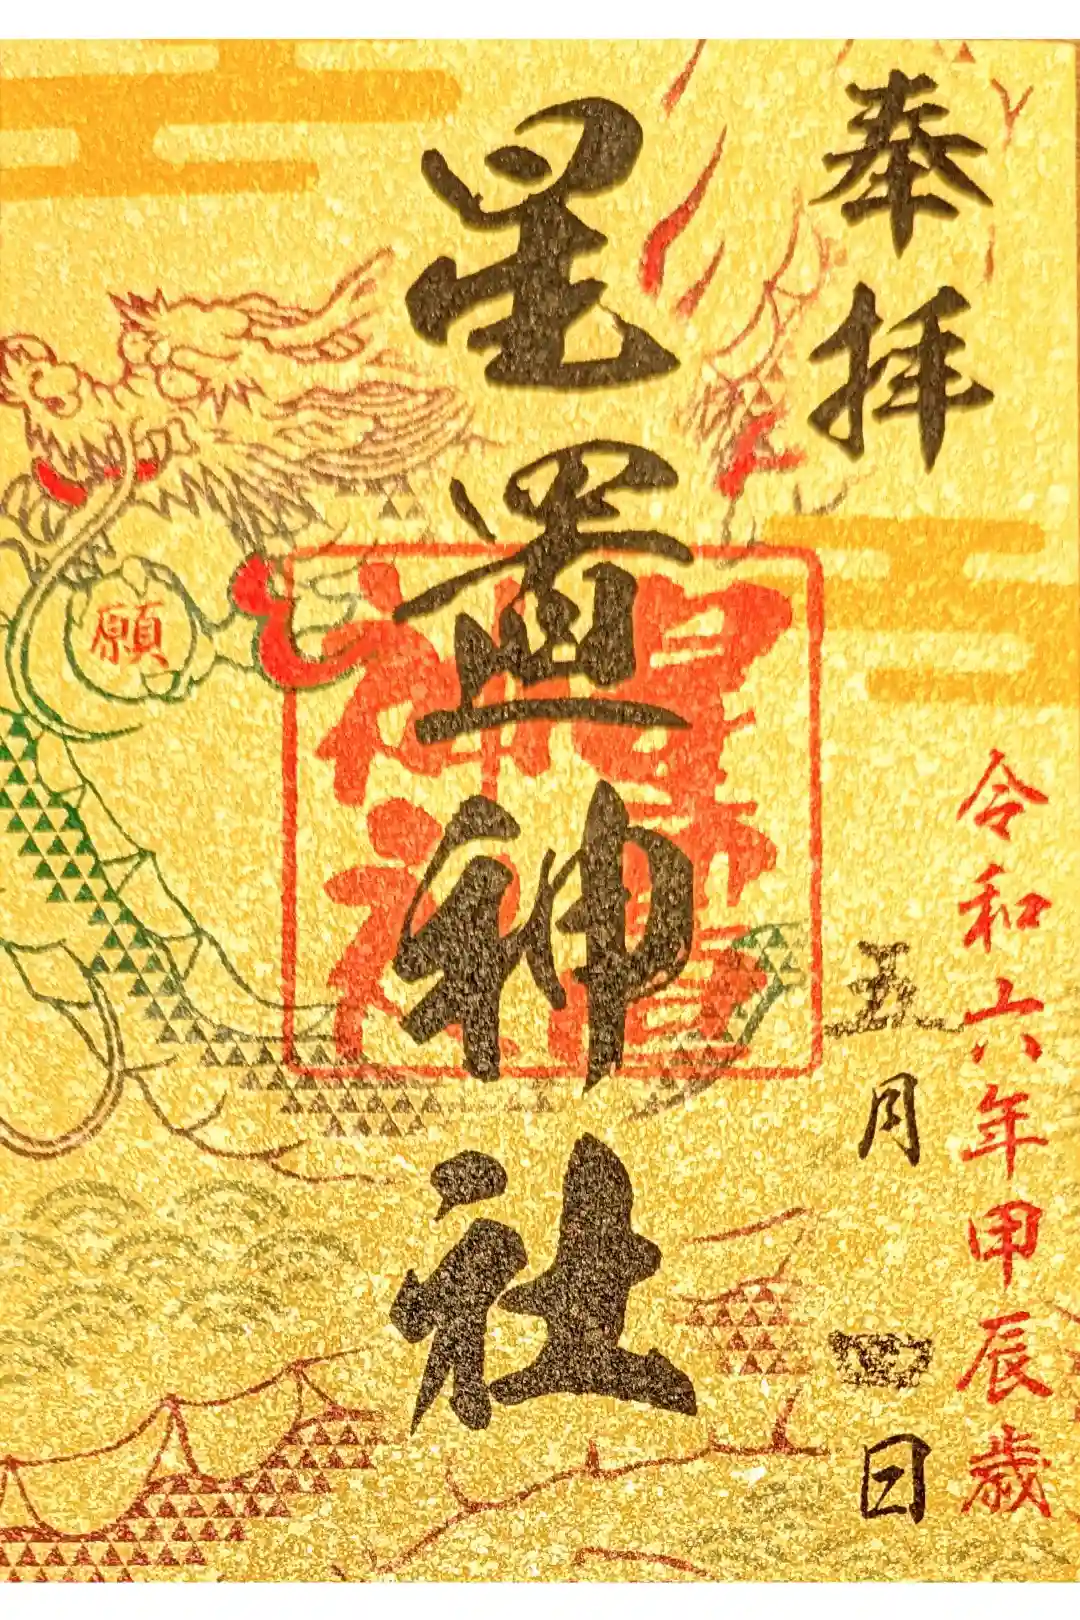 奉拝
令和六年甲辰歳
五月四日
星置神社
星置
神社
願